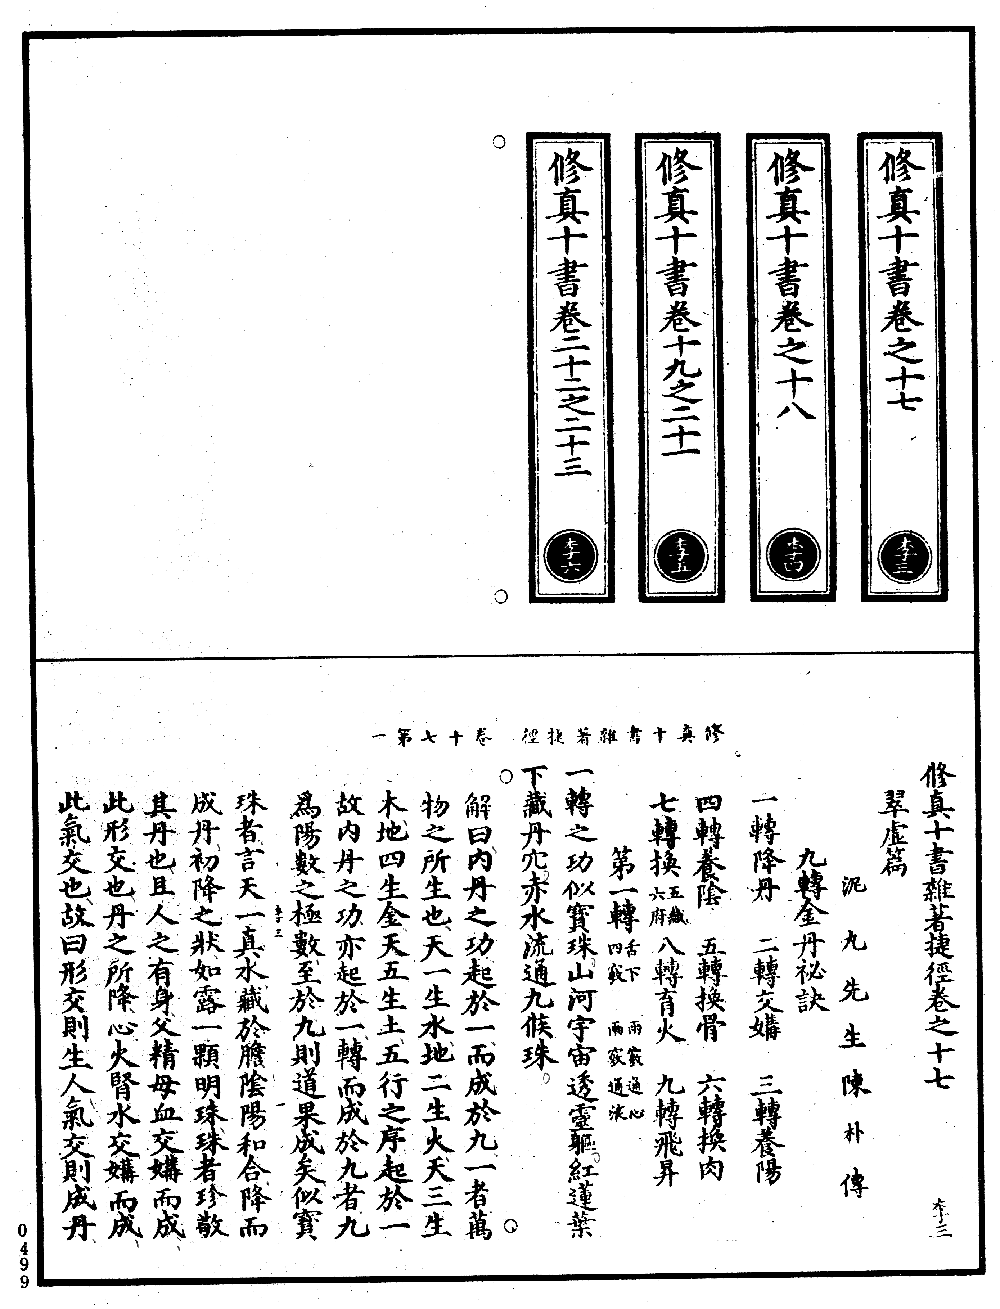 修真十書卷之十七
李三
修真十書卷之十八
李四
修真十書卷十九之二十一
李五
修真十書卷二十二之二十三
李六
修真十書雜著捷徑 卷十七第一
修真十書雜著捷徑卷之十七
李三
翠虛篇
泥九先生陳朴傳
九轉金丹祕訣
一轉降丹 二轉交媾 三轉養陽
四轉養陰 五轉換骨 六轉換肉
七轉換五臟六府 八轉育火 九轉飛昇
第一轉舌下四竅 兩竅通心 兩竅通液
一轉之功似寶珠山河宇宙透靈軀紅蓮葉
下藏丹穴赤水流通九候珠
解曰內丹之功起於一而成於九一者萬
物之所生也天一生水地二生火天三生
木地四生金天五生土五行之序起於一
故內丹之功亦起於一轉而成於九者九
為陽數之極數至於九則道果成矣似寶
李三
一
珠者言天一真水藏於膽陰陽和合降而
成丹初降之狀如露一顆明珠珠者珍敬
其丹也且人之有身父精母血交媾而成
此形交也丹之所降心火腎水交媾而成
此氣交也故曰形交則生人氣交則成丹
0499